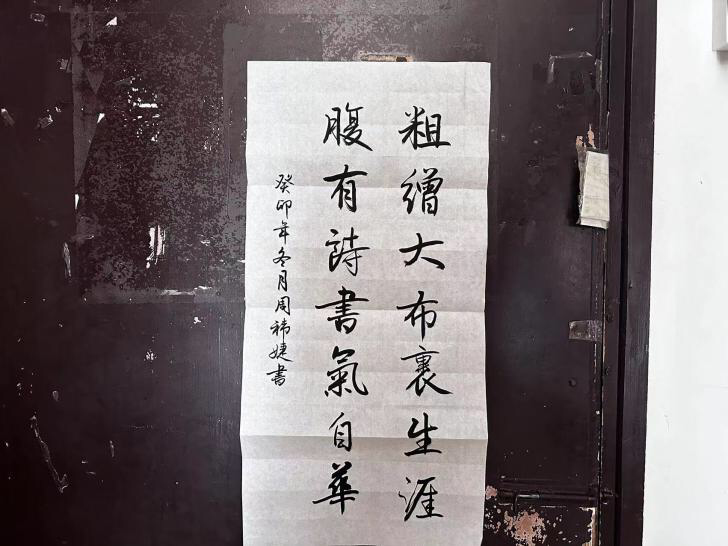 粗繒大布裹生涯
腹有詩書氣自華
癸卯年冬月周祎婕書